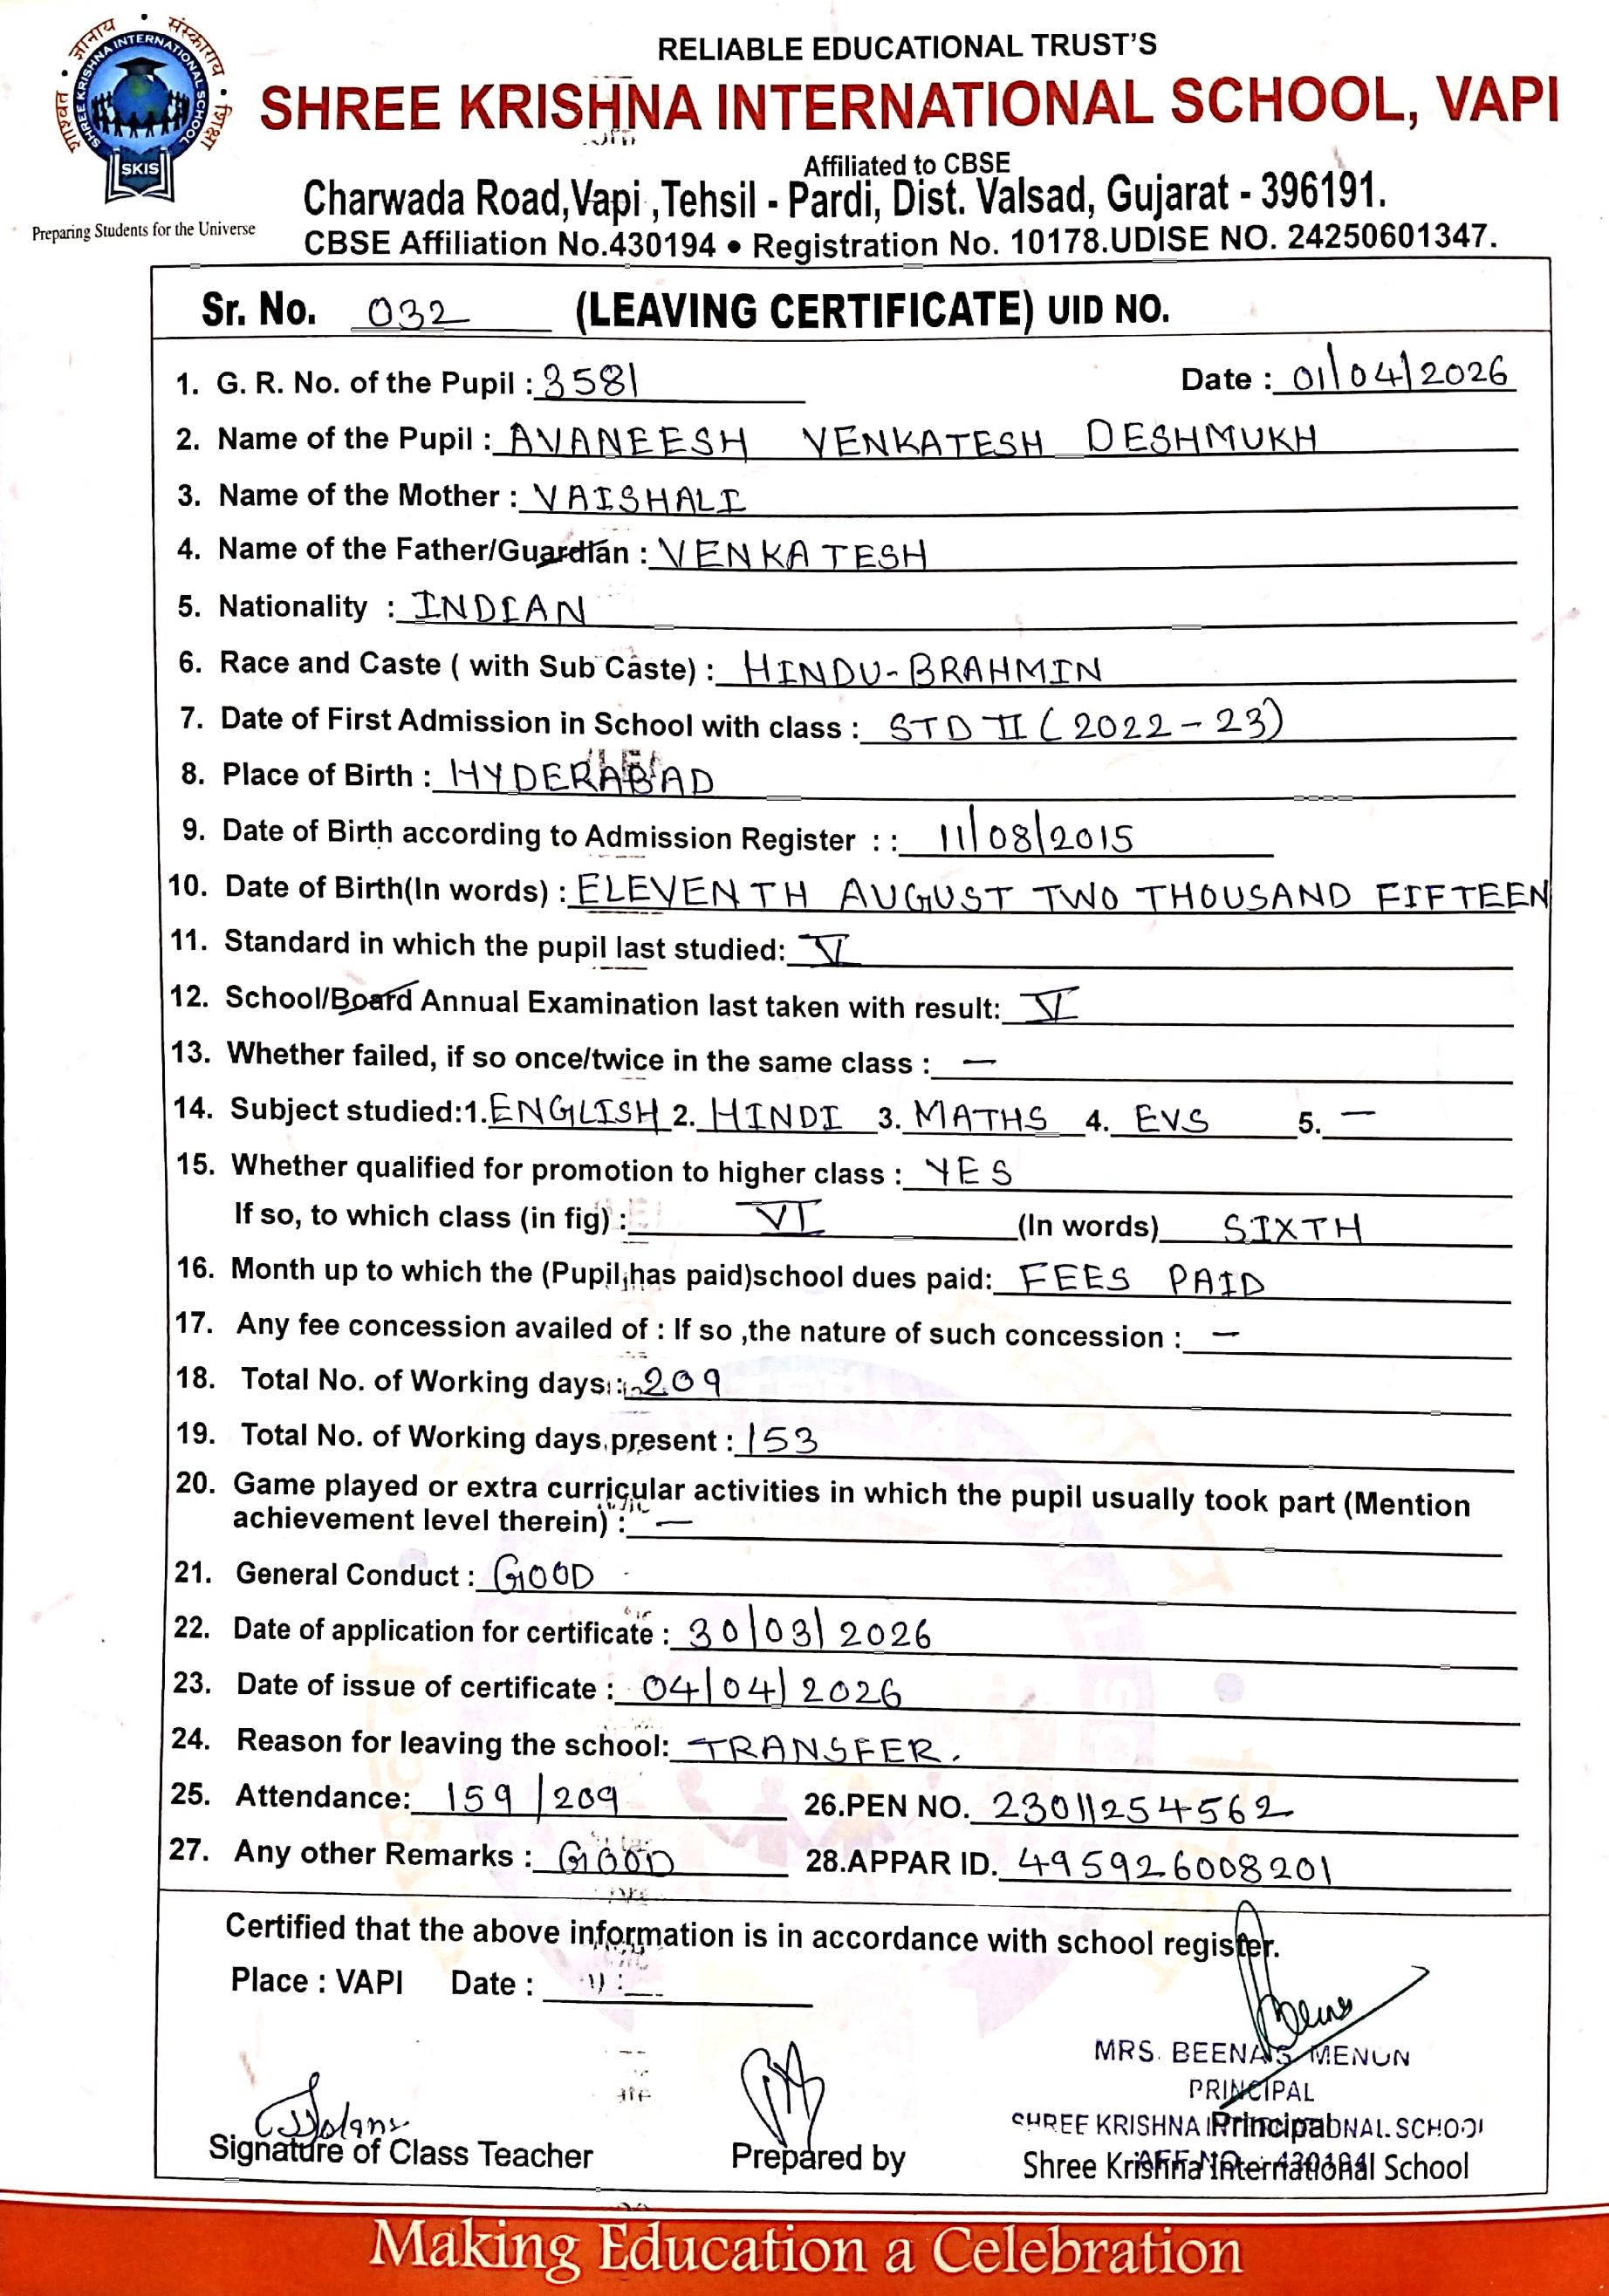 शाश्वत • ज्ञानाय • संस्काराय • शिक्षा
SHREE KRISHNA INTERNATIONAL SCHOOL
SKIS
Preparing Students for the Universe
RELIABLE EDUCATIONAL TRUST'S
SHREE KRISHNA INTERNATIONAL SCHOOL, VAPI
Affiliated to CBSE
Charwada Road,Vapi ,Tehsil - Pardi, Dist. Valsad, Gujarat - 396191.
CBSE Affiliation No.430194 • Registration No. 10178.UDISE NO. 24250601347.
Sr. No. 032 (LEAVING CERTIFICATE) UID NO.
1. G. R. No. of the Pupil : 3581 Date : 01/04/2026
2. Name of the Pupil : AVANEESH VENKATESH DESHMUKH
3. Name of the Mother : VAISHALI
4. Name of the Father/Guardian : VENKATESH
5. Nationality : INDIAN
6. Race and Caste ( with Sub Caste) : HINDU-BRAHMIN
7. Date of First Admission in School with class : STD II (2022-23)
8. Place of Birth : HYDERABAD
9. Date of Birth according to Admission Register : : 11/08/2015
10. Date of Birth(In words) : ELEVENTH AUGUST TWO THOUSAND FIFTEEN
11. Standard in which the pupil last studied: V
12. School/Board Annual Examination last taken with result: V
13. Whether failed, if so once/twice in the same class : —
14. Subject studied:1. ENGLISH 2. HINDI 3. MATHS 4. EVS 5. —
15. Whether qualified for promotion to higher class : YES
If so, to which class (in fig) : VI (In words) SIXTH
16. Month up to which the (Pupil has paid)school dues paid: FEES PAID
17. Any fee concession availed of : If so ,the nature of such concession : —
18. Total No. of Working days : 209
19. Total No. of Working days present : 153
20. Game played or extra curricular activities in which the pupil usually took part (Mention
achievement level therein) : —
21. General Conduct : GOOD
22. Date of application for certificate : 30/03/2026
23. Date of issue of certificate : 04/04/2026
24. Reason for leaving the school: TRANSFER.
25. Attendance: 159/209 26.PEN NO. 23011254562
27. Any other Remarks : GOOD 28.APPAR ID. 495926008201
Certified that the above information is in accordance with school register.
Place : VAPI Date :
MRS. BEENA S MENON
PRINCIPAL
SHREE KRISHNA INTERNATIONAL SCHOOL
AFF NO. 430194
Signature of Class Teacher Prepared by Principal
Shree Krishna International School
Making Education a Celebration